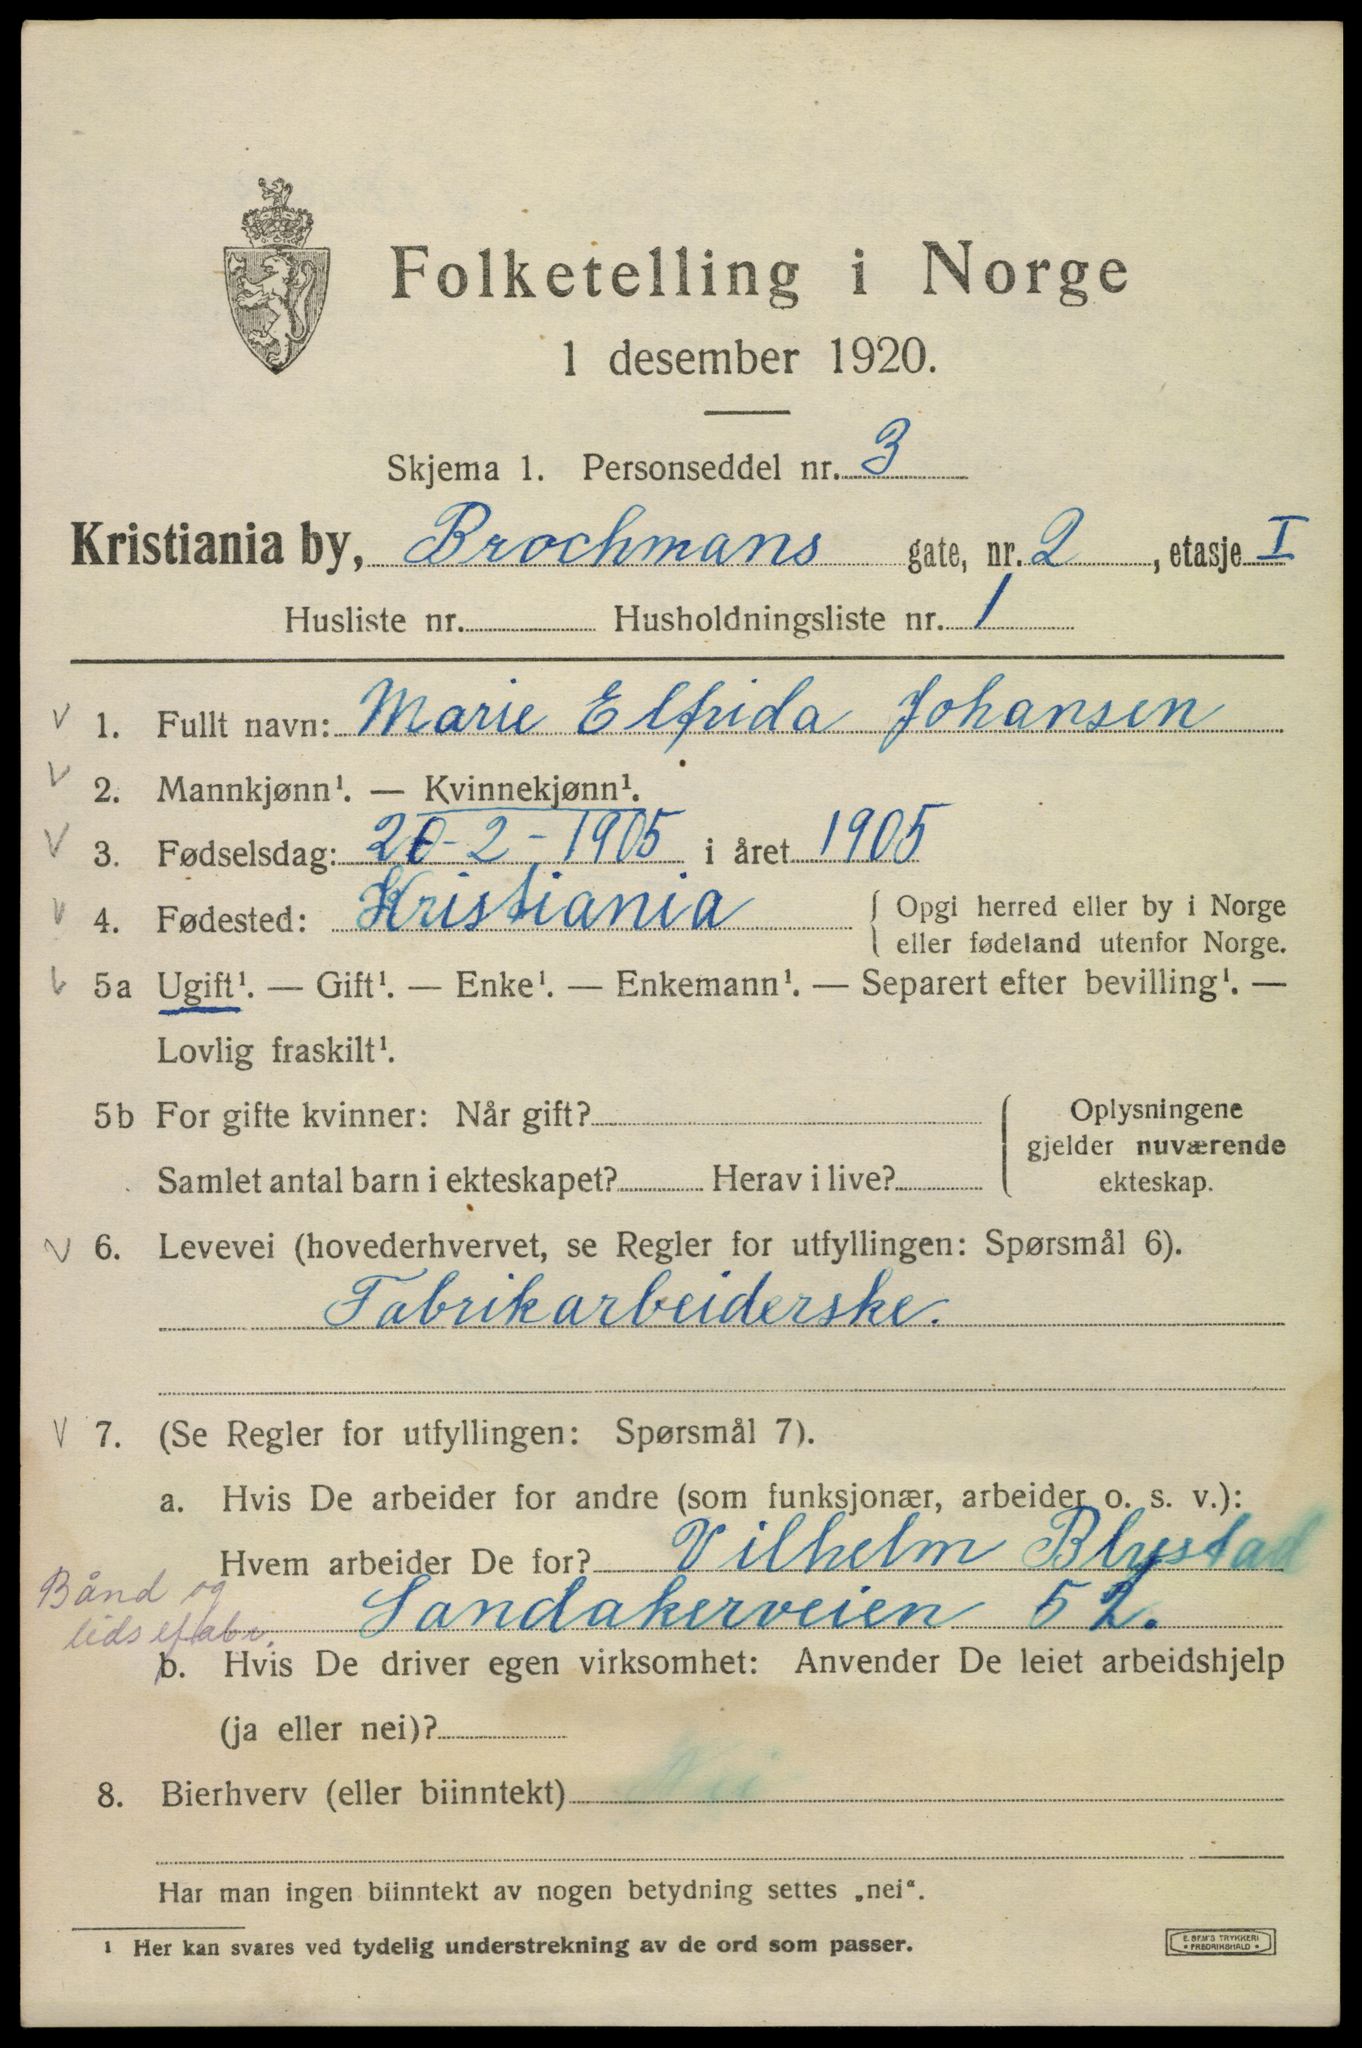 Folketelling i Norge
1 desember 1920.
Skjema 1. Personseddel nr. 3
Kristiania by, Brochmans gate, nr. 2, etasje I
Husliste nr. Husholdningsliste nr. 1
1. Fullt navn: Marie Elfrida Johansen
2. Mannkjønn¹. — Kvinnekjønn¹.
3. Fødselsdag: -2-1905 i året 1905
4. Fødested: Kristiania { Opgi herred eller by i Norge
eller fødeland utenfor Norge.
5a Ugift¹. — Gift¹. — Enke¹. — Enkemann¹. — Separert efter bevilling¹. —
Lovlig fraskilt¹.
5b For gifte kvinner: Når gift? { Oplysningene
gjelder nuværende
Samlet antal barn i ekteskapet? Herav i live? ekteskap.
6. Levevei (hovederhvervet, se Regler for utfyllingen: Spørsmål 6).
Fabrikarbeiderske.
7. (Se Regler for utfyllingen: Spørsmål 7).
a. Hvis De arbeider for andre (som funksjonær, arbeider o. s. v.):
Hvem arbeider De for? Vilhelm Blystad
Bånd og
Sandakerveien 52.
b. Hvis De driver egen virksomhet: Anvender De leiet arbeidshjelp
(ja eller nei)?
8. Bierhverv (eller biinntekt) Nei
Har man ingen biinntekt av nogen betydning settes „nei“.
¹ Her kan svares ved tydelig understrekning av de ord som passer.
E. SEM'S TRYKKERI
* FREDRIKSHALD *